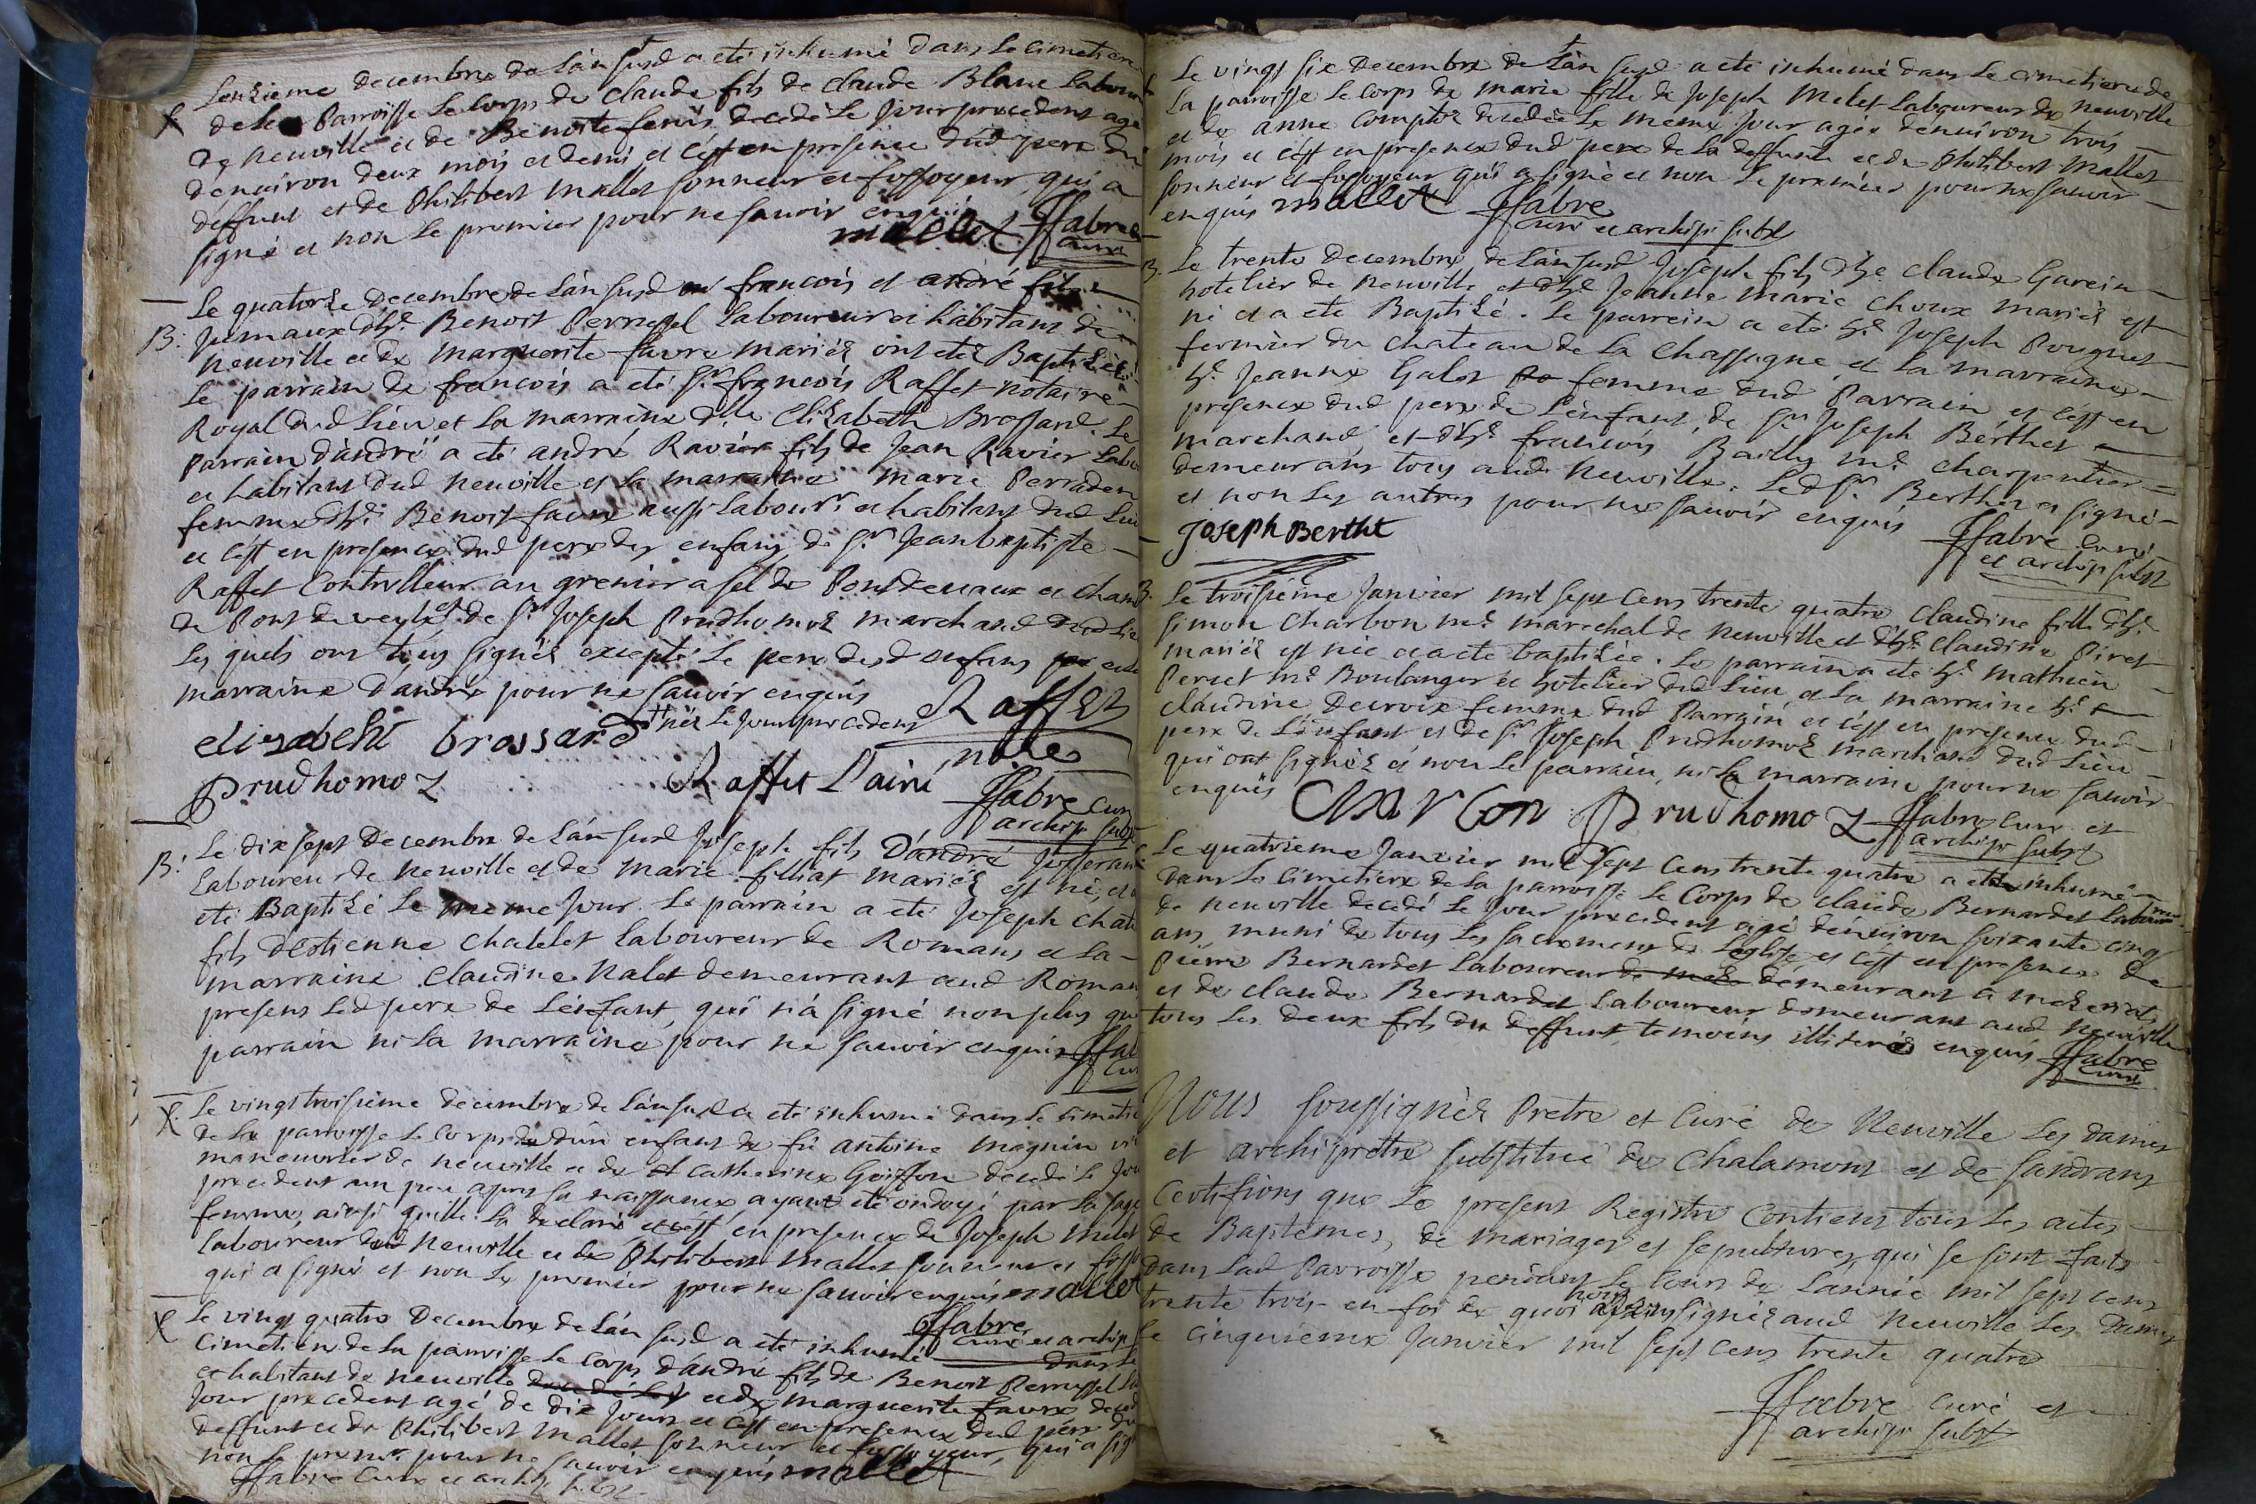 L'onzieme decembre de l'an susd a eté inhumé dans le cimetiere
de la Parroisse le corps de claude fils de claude Blanc Labour
de neuville et de Benoite fenis decedé le jour precedent agé
denuiron deux mois et demi et c'est en presence dud pere du
deffunt et de Philibert mallet sonneur et fossoyeur, qui a
signé et non le premier pour ne sauoir enquis
mallet ffabre
curé
Le quatorze decembre de l'an susd francois et andré fils
B. jumaux d'h.e Benoit Perrussel Laboureur et habitant de
neuville et de marguerite faure mariés ont eté Baptisés
Le parrain de francois a eté s.r francois Raffet notaire
Royal dud Lieu et la marraine d.lle Elizabeth Brossard. Le
Parrain d'andré a eté andré Ravier fils de Jean Ravier Labo
et habitant dud neuville et la marraine marie Perraden
femme d'h.e Benoit faure aussi labour.r et habitant dud Lieu
et c'est en presence dud pere des enfans, de s.r Jean baptiste
Raffet Controlleur au grenier a sel de Pontdevaux et cham
de Pont de veyle et de s.r Joseph Prudhomoz marchand dud Lieu
Les quels ont tous signéz excepté le pere desd enfans et
marraine d'andré pour ne sauoir enquis
† néz le jour precedent Raffet
elizabeht brossard note
prudhomoz Raffet L'ainé ffabre curé
archip subst
Le dix sept Decembre de l'an susd Joseph fils D'andré Josserand
B. Laboureur de neuville et de marie filliat mariéz est né, et a
eté Baptizé le meme Jour. Le parrain a eté Joseph chate
fils d'estienne chatelet laboureur de Romans et la
marraine claudine nalet demeurant aud Roman
presens led pere de l'enfant, qui n'a signé non plus que
parrain ni la marraine pour ne sauoir enquis ffab
cur
Le vingt troisieme decembre de l'an susd a eté inhumé dans le cimetie
de la parroisse le corps d'un enfant de fû antoine magnin vi
maneuvrier de neuville et de catherine Goiffon decedé le jou
precedent un peu apres sa naissance ayant eté ondoyé par la sage
femme, ainsi qu'elle l'a declaré et c'est en presence de Joseph melet
laboureur dud neuville et de Philibert mallet sonneur et fosso
qui a signé et non le premier pour ne sauoir enquis mallet
ffabre
curé et archip
Le vingt quatre Decembre de l'an susd a eté inhumé dans le
cimetiere de la parroisse le corps d'andré fils de Benoit Perrussel La
et habitant de neuville et de marguerite faure deced
jour precedent agé de dix jours et c'est en presence dud pere du
deffunt et de Philibert mallet sonneur et fossoyeur, qui a sign
non le prem.r pour ne sauoir enquis mallet
ffabre curé et archip subst
Le vingt six decembre de l'an susd a eté inhumé dans le cimetiere de
la parroisse le corps de marie fille de Joseph Melet Laboureur de neuville
et de anne Comptoz decedée le meme jour agée denuiron trois
mois et c'est en presence dud pere de la deffunte et de Philibert Mallet
sonneur et fossoyeur qui a signé et non le premier pour ne sauoir
enquis mallet ffabre
curé et archip subst
B. Le trente decembre de l'an susd Joseph fils d'h.e claude Garein
hotelier de neuville et d'h.e Jeanne marie choux mariéz est
né et a eté Baptizé. Le parrein a eté h.e Joseph Pouguet
fermier du chateau de la Chassagne et la marraine
h.e Jeanne Galet femme dud Parrain et c'est en
presence dud pere de l'enfant, de s.r Joseph Berthet
marchand et d'h.e francois Bailly m.e charpentier
demeurans tous aud neuville. Led s.r Berthet a signé
et non les autres pour ne sauoir enquis
Joseph Bertht ffabre curé
et archip subst
B. Le troisieme Janvier mil sept cens trente quatre claudine fille d'h.e
simon Charbon m.e marechal de neuville et d'h.e claudine Piret
mariéz est née et a eté baptizée. Le parrain a eté h.e mathieu
Peruet m.e Boulanger et hotelier dud lieu et la marraine h.e
claudine Decroix femme dud Parrain et c'est en presence dud
pere de l'enfant et de s.r Joseph Prudhomoz marchand dud lieu
qui ont signéz et non le parrain, ni la marraine pour ne sauoir
enquis
Charbon prudhomoz ffabre curé et
archip subst
Le quatrieme Janvier mil sept cens trente quatre a eté inhumé
dans le cimetiere de la parroisse le corps de claude Bernardet laboureur
de neuville decedé le jour precedent agé denuiron soixante cinq
ans, muni de tous les sacremens de l'eglise et c'est en presence de
Pierre Bernardet laboureur demeurant a mezeriat
et de claude Bernardet laboureur demeurant aud neuville
tous les deux fils du deffunt, temoins illiteréz enquis ffabre
curé
Nous soussignéz Pretre et Curé de Neuville les dames
et archipretre substitué de Chalamont et de Sandrans
Certifions que le present Registre contient tous les actes
de Baptemes, de mariages et sepultures, qui se sont faits
dans lad Parroisse pendant le cours de l'année mil sept cens
trente trois en foi de quoi nous avons signéz aud Neuville les dames
le cinquieme Janvier mil sept cens trente quatre
ffabre curé et
archip subst